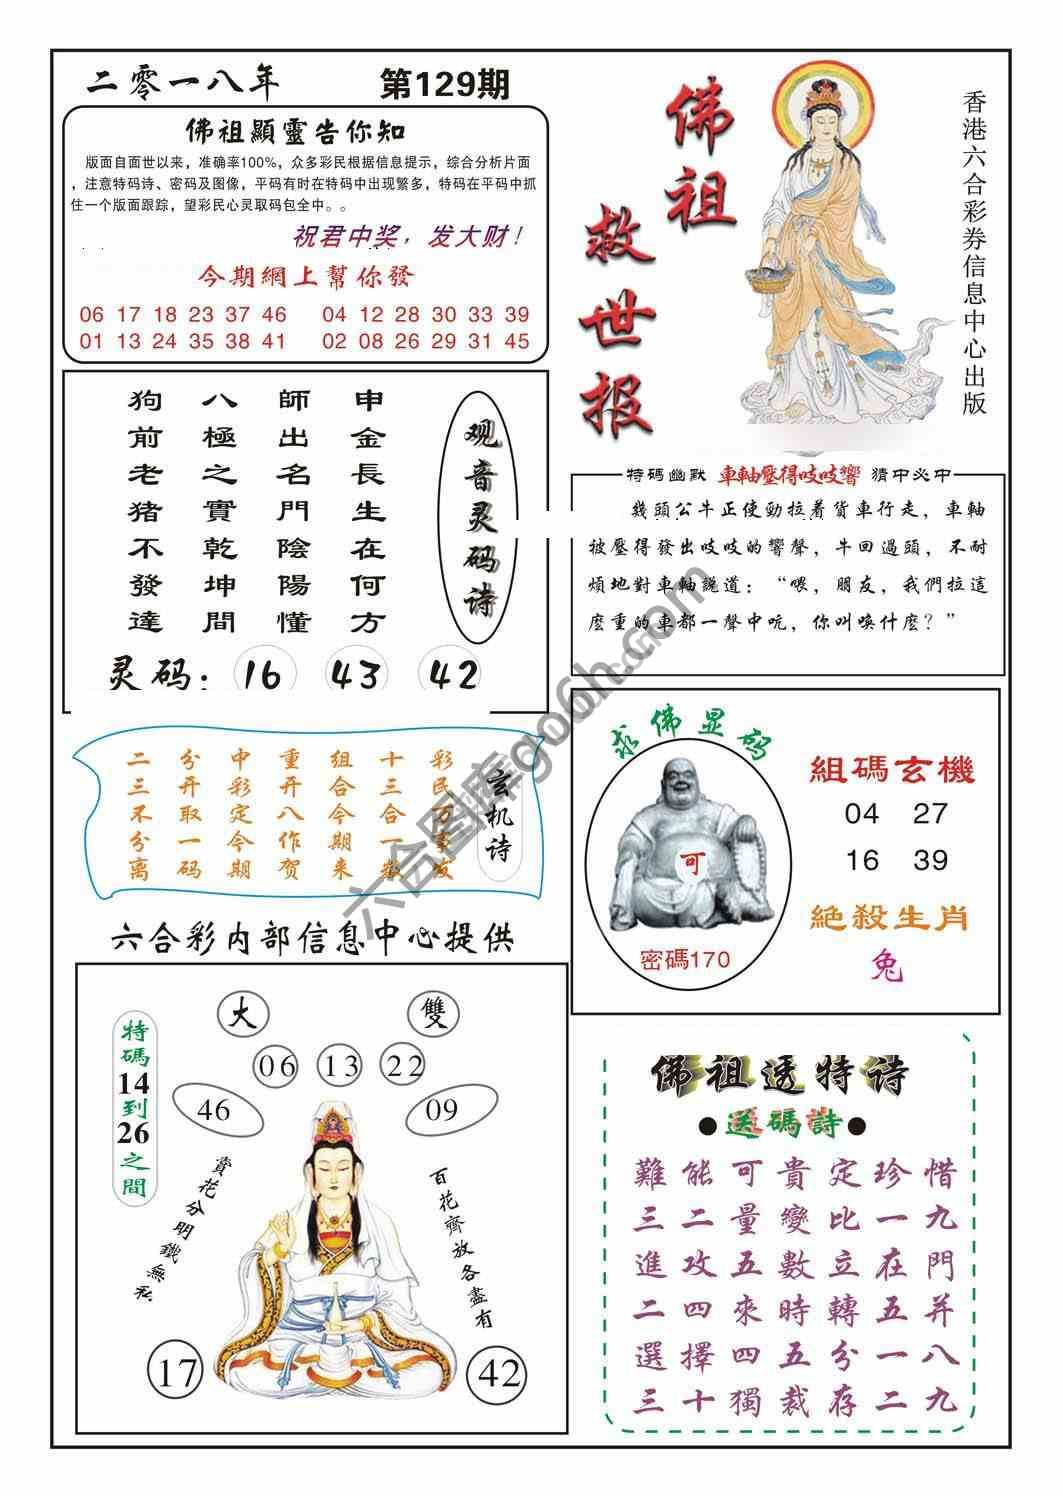 二零一八年
第129期
佛祖顯靈告你知
版面自面世以来，准确率100%，众多彩民根据信息提示，综合分析片面
，注意特码诗、密码及图像，平码有时在特码中出现繁多，特码在平码中抓
住一个版面跟踪，望彩民心灵取码包全中。。
祝君中奖，发大财！
今期網上幫你發
06 17 18 23 37 46 04 12 28 30 33 39
01 13 24 35 38 41 02 08 26 29 31 45
佛祖
救世报
香港六合彩券信息中心出版
观音灵码诗
申金長生在何方
師出名門陰陽懂
八極之實乾坤間
狗前老猪不發達
灵码：16 43 42
特碼幽默 車軸壓得吱吱響 猜中必中
幾頭公牛正使勁拉着貨車行走，車軸
被壓得發出吱吱的響聲，牛回過頭，不耐
煩地對車軸說道：“喂，朋友，我們拉這
麼重的車都一聲中吭，你叫喚什麼？”
玄机诗
彩民万事发
十三合一数
組合今期来
重开八作贺
中彩定今期
分开取一码
二三不分离
求佛显码
可
密碼170
組碼玄機
04 27
16 39
絕殺生肖
兔
六合彩内部信息中心提供
特碼14到26之間
大 雙
06 13 22
46 09
賞花分明鐵無私
百花齊放各盡有
17 42
佛祖透特诗
●送碼詩●
難能可貴定珍惜
三二量變比一九
進攻五數立在門
二四來時轉五并
選擇四五分一八
三十獨裁存二九
六合图库go6h.com